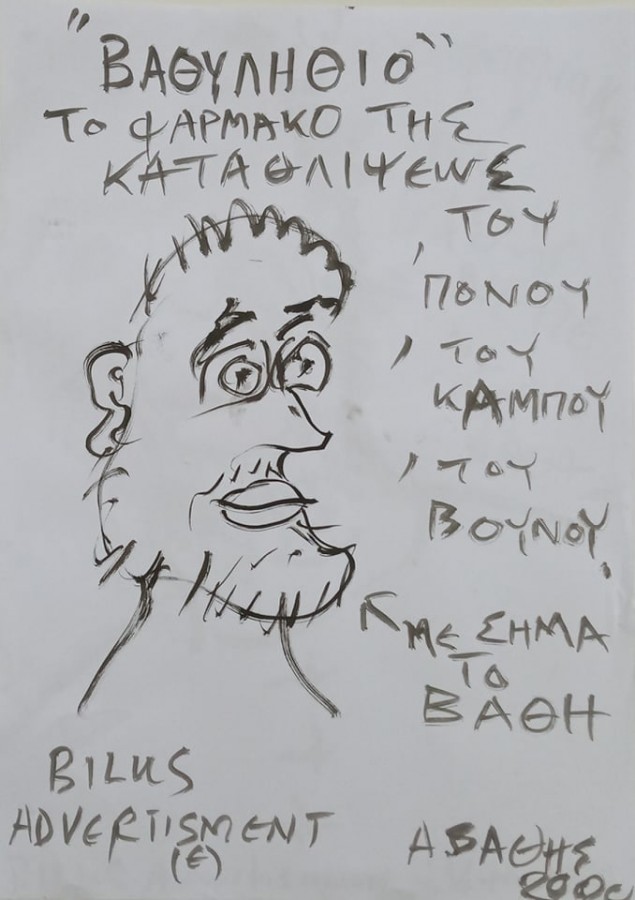 "ΒΑΘΥΛΗΘΙΟ"
ΤΟ ΦΑΡΜΑΚΟ ΤΗΣ
ΚΑΤΑΘΛΙΨΕΩΣ
, ΤΟΥ
ΠΟΝΟΥ
, ΤΟΥ
ΚΑΜΠΟΥ
, ΤΟΥ
ΒΟΥΝΟΥ,
ΜΕ ΣΗΜΑ
ΤΟ
ΒΑΘΗ
BILUS
ADVERTISMENT
(E)
ΑΒΑΘΗΣ